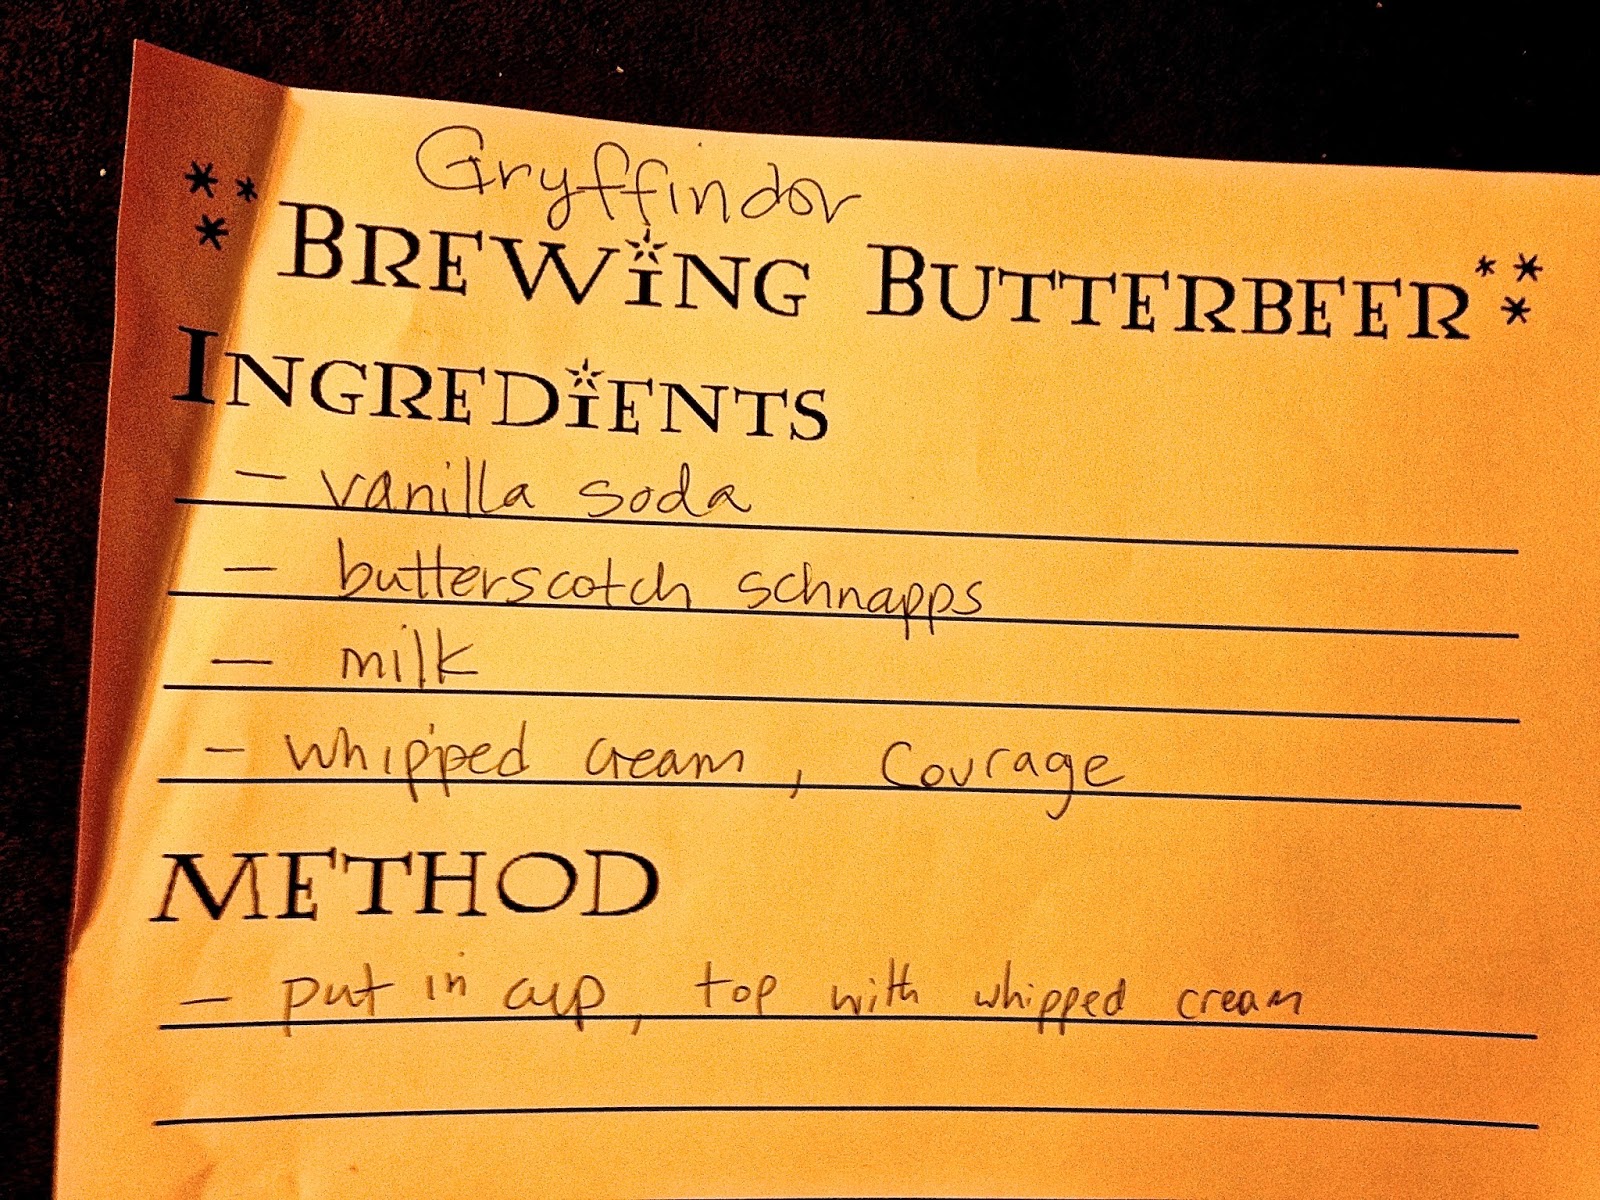 Gryffindor
** BREWING BUTTERBEER **
* *
INGREDIENTS
- vanilla soda
- butterscotch schnapps
- milk
- whipped cream, Courage
METHOD
- put in cup, top with whipped cream